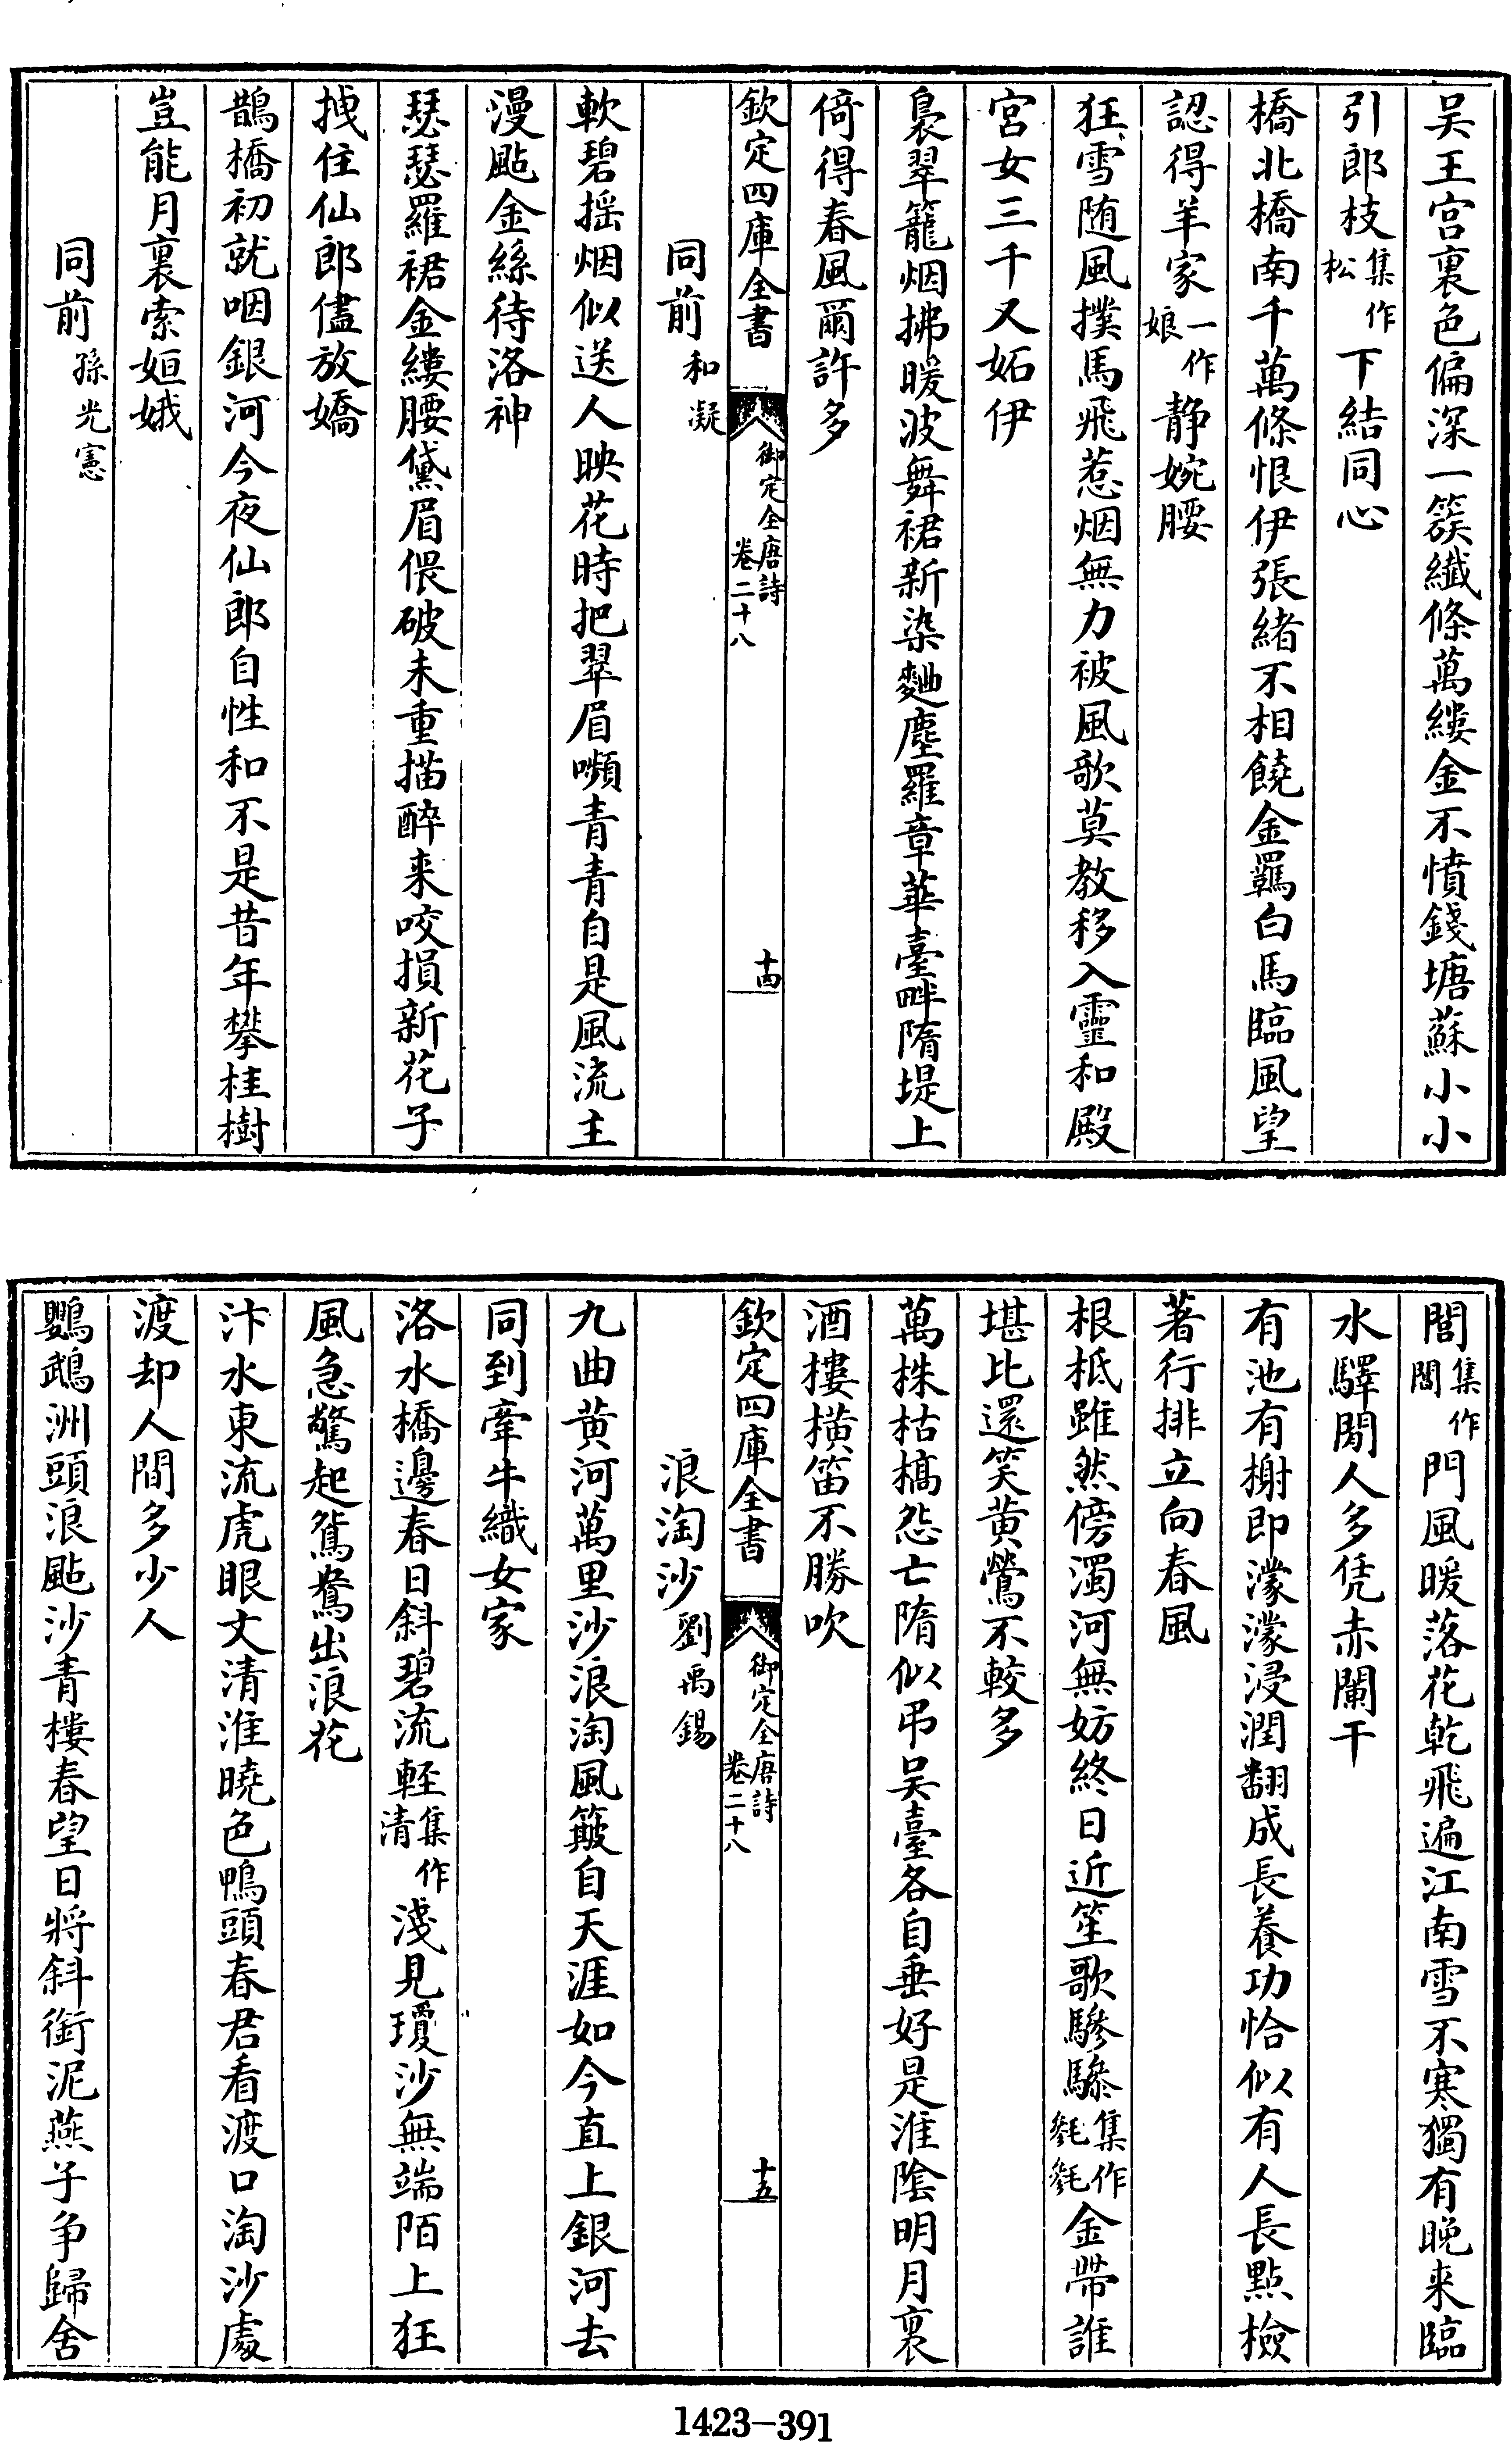 吴王宫裏色偏深一簇纖條萬縷金不憤錢塘蘇小小
引郎枝集作松下結同心
橋北橋南千萬條恨伊張緒不相饒金羈白馬臨風望
認得羊家一作娘静婉腰
狂雪随風撲馬飛惹烟無力被風歌莫教移入靈和殿
宮女三千又妬伊
裊翠籠烟拂暖波舞裙新染麴塵羅章華臺畔隋堤上
倚得春風爾許多
欽定四庫全書
御定全唐詩
卷二十八
十四
同前和凝
軟碧摇烟似送人映花時把翠眉嚬青青自是風流主
漫颭金絲待洛神
瑟瑟羅裙金縷腰黛眉偎破未重描醉来咬損新花子
拽住仙郎儘放嬌
鵲橋初就咽銀河今夜仙郎自性和不是昔年攀桂樹
豈能月裏索姮娥
同前孫光憲
閶集作閶門風暖落花乾飛遍江南雪不寒獨有晩来臨
水驛閒人多凭赤闌干
有池有榭即濛濛浸潤翻成長養功恰似有人長點檢
著行排立向春風
根柢雖然傍濁河無妨終日近笙歌驂驂集作毿毿金帶誰
堪比還笑黄鶯不較多
萬株枯槁怨亡隋似吊吴臺各自垂好是淮陰明月裏
酒樓横笛不勝吹
欽定四庫全書
御定全唐詩
卷二十八
十五
浪淘沙劉禹錫
九曲黄河萬里沙浪淘風簸自天涯如今直上銀河去
同到牽牛織女家
洛水橋邊春日斜碧流輕集作清淺見瓊沙無端陌上狂
風急驚起鴛鴦出浪花
汴水東流虎眼文清淮曉色鴨頭春君看渡口淘沙處
渡却人間多少人
鸚鵡洲頭浪颭沙青樓春望日將斜銜泥燕子争歸舍
1423-391